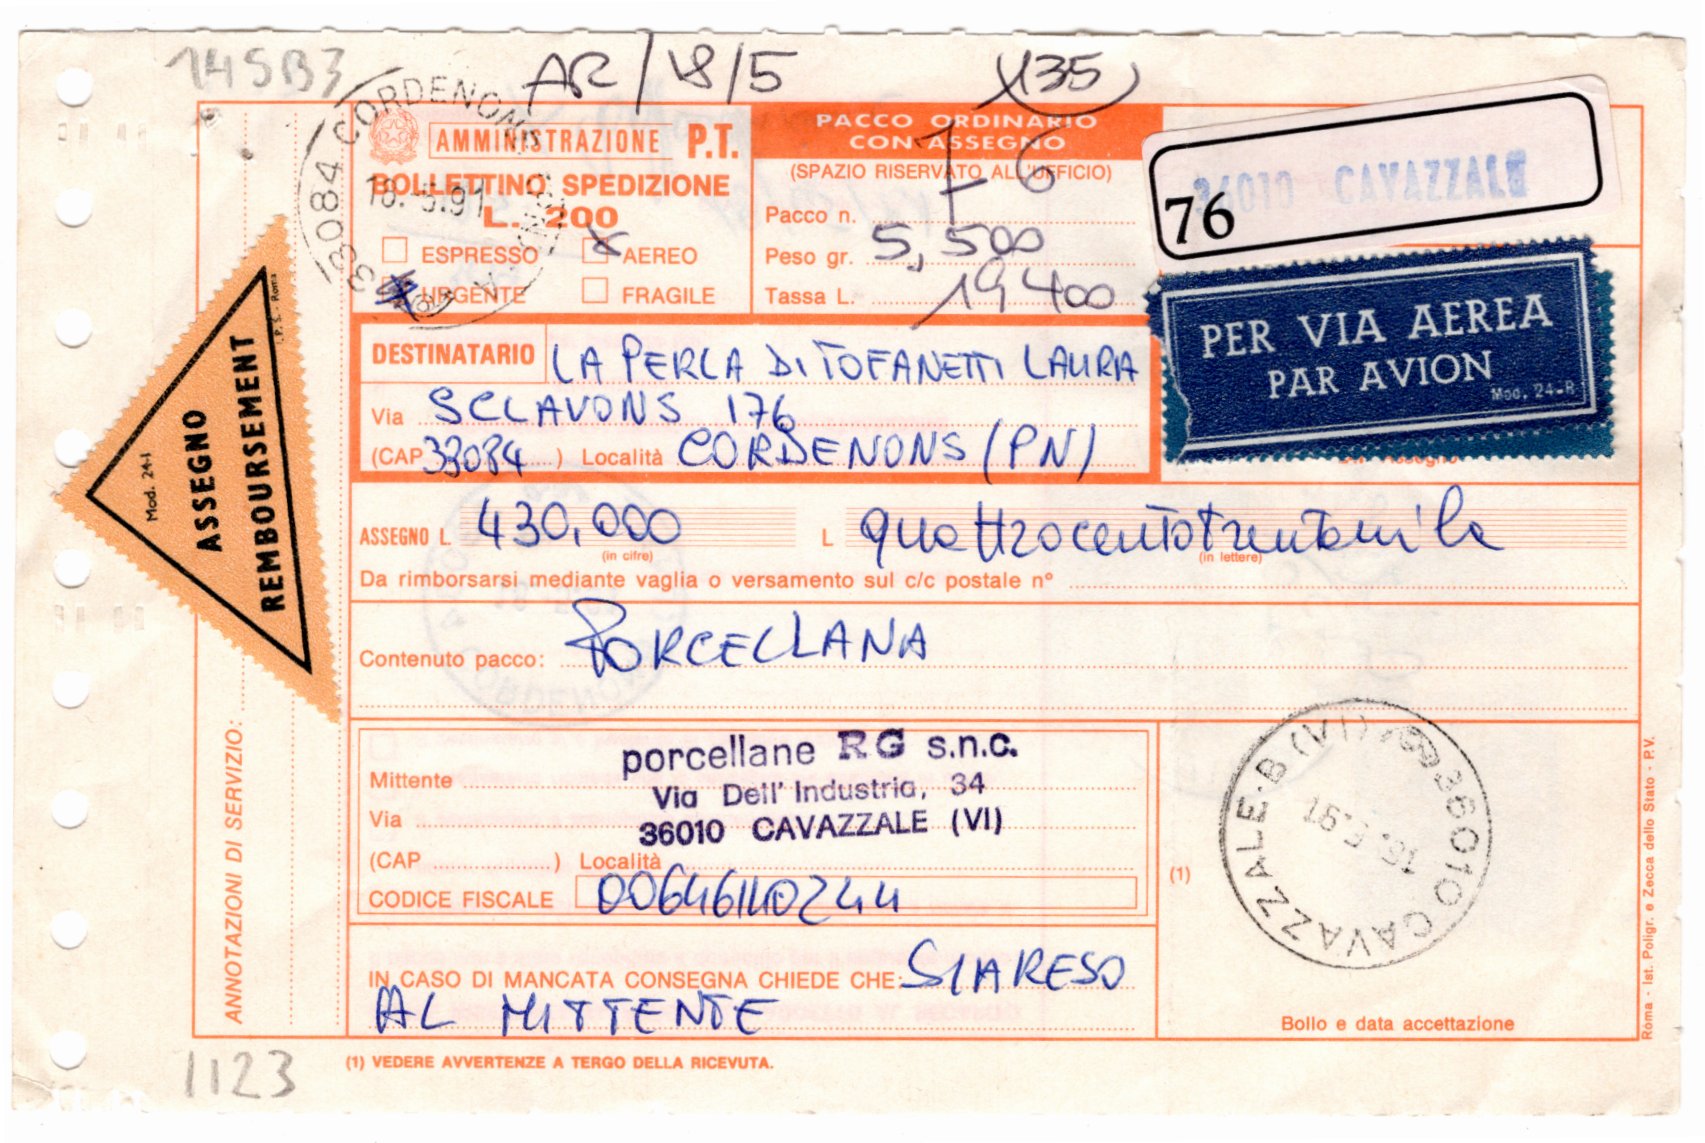 14SB3
AR/18/5
135
33084 CORDENONS
18.5.91
AMMINISTRAZIONE P.T.
BOLLETTINO SPEDIZIONE
L. 200
ESPRESSO
AEREO
URGENTE
FRAGILE
PACCO ORDINARIO
CON ASSEGNO
(SPAZIO RISERVATO ALL'UFFICIO)
Pacco n. 76
Peso gr. 5,500
Tassa L. 19400
76
36010 CAVAZZALE
PER VIA AEREA
PAR AVION
Mod. 24-B
Mod. 24-I
ASSEGNO
REMBOURSEMENT
I.P.S. - Roma
DESTINATARIO LA PERLA DI TOFANETTI LAURA
Via SCLAVONS 176
(CAP 33084) Località CORDENONS (PN)
ASSEGNO L. 430.000 L quattrocentotrentamila
(in cifre) (in lettere)
Da rimborsarsi mediante vaglia o versamento sul c/c postale n°
Contenuto pacco: PORCELLANA
ANNOTAZIONI DI SERVIZIO:
Mittente porcellane RG s.n.c.
Via Dell' Industria, 34
Via
36010 CAVAZZALE (VI)
(CAP ) Località
CODICE FISCALE 00646140244
(1)
36010 CAVAZZALE-B (VI)
IN CASO DI MANCATA CONSEGNA CHIEDE CHE: SIA RESO
AL MITTENTE
Bollo e data accettazione
Roma - Ist. Poligr. e Zecca dello Stato - P.V.
(1) VEDERE AVVERTENZE A TERGO DELLA RICEVUTA.
1123